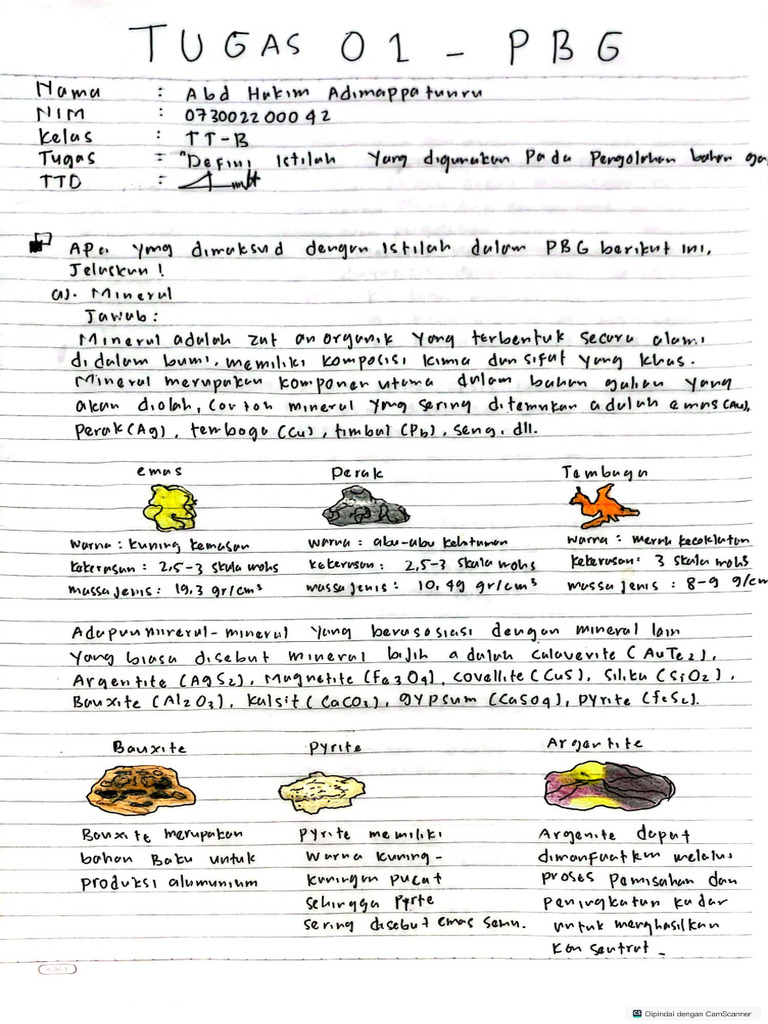 TUGAS 01 - PBG
Nama : Abd Hakim Adimappatunru
NIM : 07300220042
Kelas : TT-B
Tugas = "Defini Istilah Yang digunakan Pada Pengolahan bahan
TTD :
Apa yang dimaksud dengan Istilah dalam PBG berikut ini,
Jelaskan!
a). Mineral
Jawab:
Mineral adalah zat an organik yang terbentuk secara alami
di dalam bumi, memiliki komposisi kimia dan sifat yang khas.
Mineral merupakan komponen utama dalam bahan galian yang
akan diolah, Contoh mineral yang sering ditemukan adalah emas (Au),
Perak (Ag), tembaga (Cu), timbal (Pb), seng, dll.
emas Perak Tembaga
Warna : kuning kemasan warna : abu-abu kehitaman warna : merah kecoklatan
kekerasan : 2,5-3 skala mohs kekerasan : 2,5-3 skala mohs kekerasan : 3 skala mohs
massa jenis : 19,3 gr/cm³ massa jenis : 10,49 gr/cm³ massa jenis : 8-9 g/cm
Adapun mineral-mineral yang berasosiasi dengan mineral lain
yang biasa disebut mineral bijih adalah calaverite (AuTe2),
Argentite (AgS2), Magnetite (Fe3O4), covellite (CuS), Silika (SiO2),
Bauxite (Al2O3), kalsit (CaCO3), gypsum (CaSO4), pyrite (feS2).
Bauxite Pyrite Argentite
Bauxite merupakan Pyrite memiliki Argenite dapat
bahan Baku untuk warna kuning- dimanfaatkan melalui
produksi alumunium kuningan pucat proses pemisahan dan
sehingga Pyrte peningkatan kadar
sering disebut emas semu. untuk menghasilkan
konsentrat
Dipindai dengan CamScanner